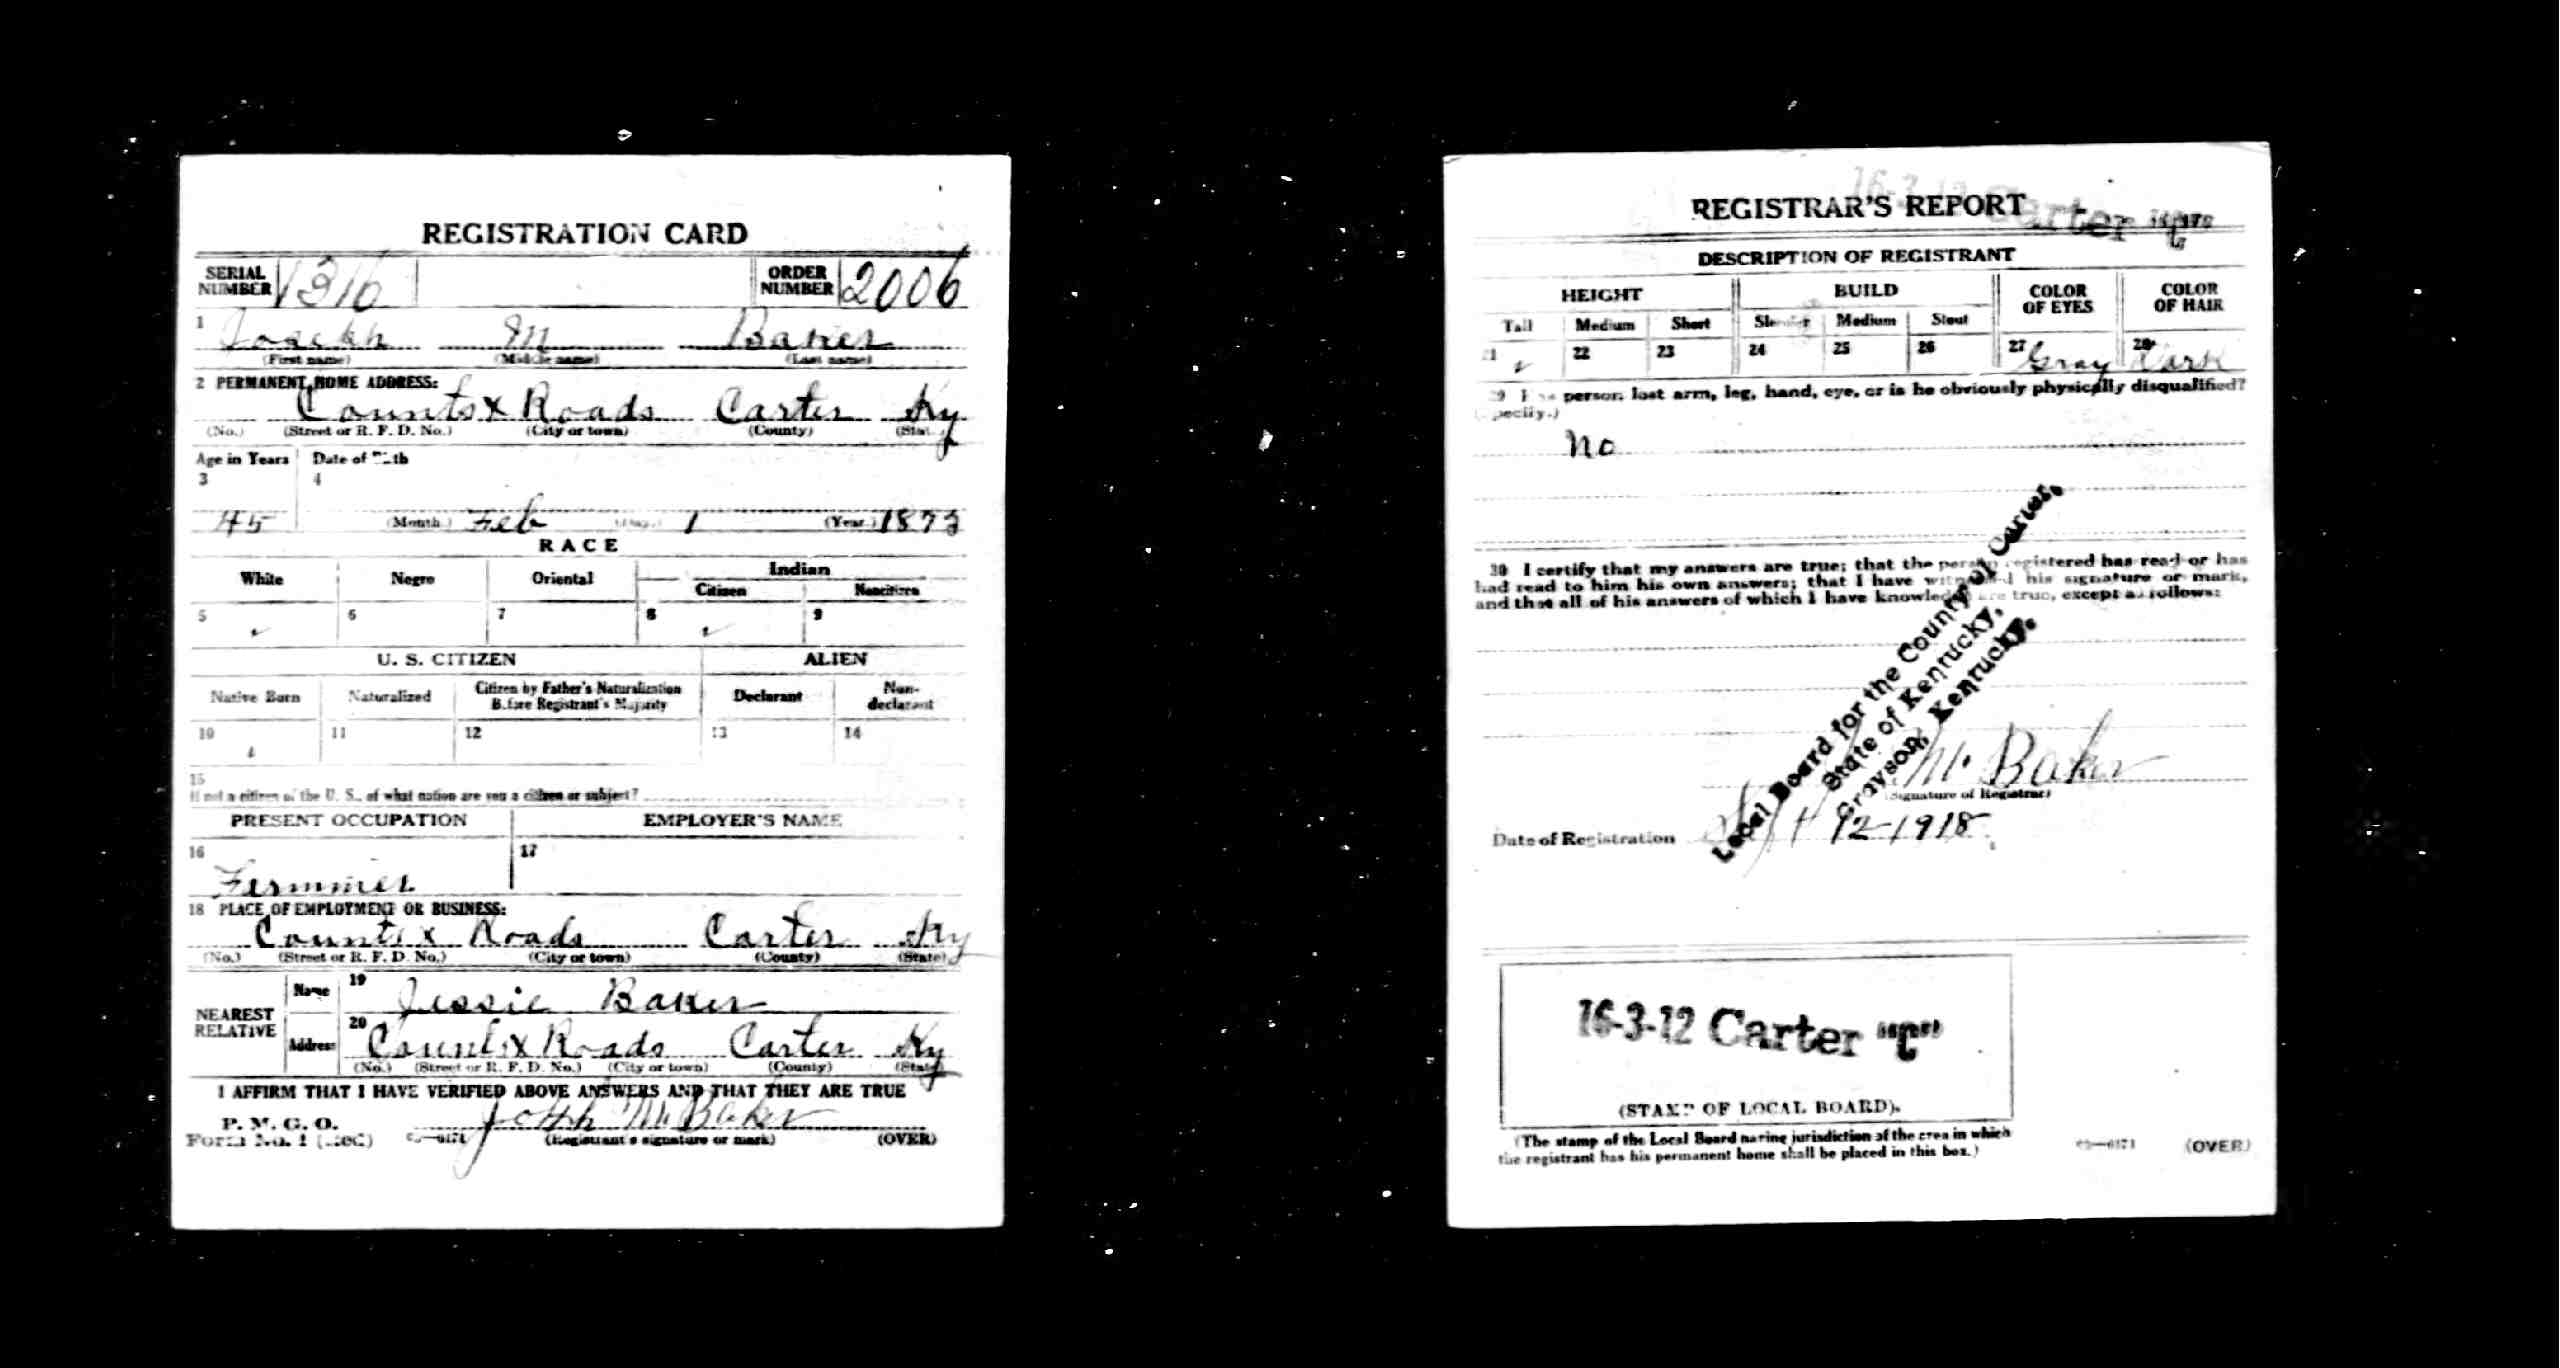 REGISTRATION CARD
SERIAL NUMBER 1316 ORDER NUMBER 2006
1 Joseph M Baker
(First name) (Middle name) (Last name)
2 PERMANENT HOME ADDRESS:
Counts X Roads Carter Ky
(No.) (Street or R. F. D. No.) (City or town) (County) (State)
Age in Years Date of Birth
3 4
45 (Month.) Feb (Day.) 1 (Year.) 1873
RACE
White Negro Oriental Indian
Citizen Noncitizen
5 ✓ 6 7 8 ✓ 9
U. S. CITIZEN ALIEN
Native Born Naturalized Citizen by Father's Naturalization Before Registrant's Majority Declarant Non-declarant
10 11 12 13 14
15
If not a citizen of the U. S., of what nation are you a citizen or subject?
PRESENT OCCUPATION EMPLOYER'S NAME
16 17
Farmmer
18 PLACE OF EMPLOYMENT OR BUSINESS:
Counts X Roads Carter Ky
(No.) (Street or R. F. D. No.) (City or town) (County) (State)
NEAREST RELATIVE
Name 19 Jessie Baker
Address 20 Counts X Roads Carter Ky
(No.) (Street or R. F. D. No.) (City or town) (County) (State)
I AFFIRM THAT I HAVE VERIFIED ABOVE ANSWERS AND THAT THEY ARE TRUE
P. M. G. O.
Form No. 1 (Red) Joseph M Baker
(Registrant's signature or mark) (OVER)
16-3-12 Carter "C"
REGISTRAR'S REPORT
DESCRIPTION OF REGISTRANT
HEIGHT BUILD COLOR OF EYES COLOR OF HAIR
Tall Medium Short Slender Medium Stout
21 ✓ 22 23 24 25 26 27 Gray 28 Dark
29 Has person lost arm, leg, hand, eye, or is he obviously physically disqualified?
(Specify.)
No
30 I certify that my answers are true; that the person registered has read or has
had read to him his own answers; that I have witnessed his signature or mark,
and that all of his answers of which I have knowledge are true, except as follows:
Local Board for the County of Carter,
State of Kentucky,
Grayson, Kentucky.
M. Baker
(Signature of Registrar)
Date of Registration Sept 12-1918
16-3-12 Carter "C"
(STAMP OF LOCAL BOARD).
(The stamp of the Local Board having jurisdiction of the area in which
the registrant has his permanent home shall be placed in this box.)
(OVER)